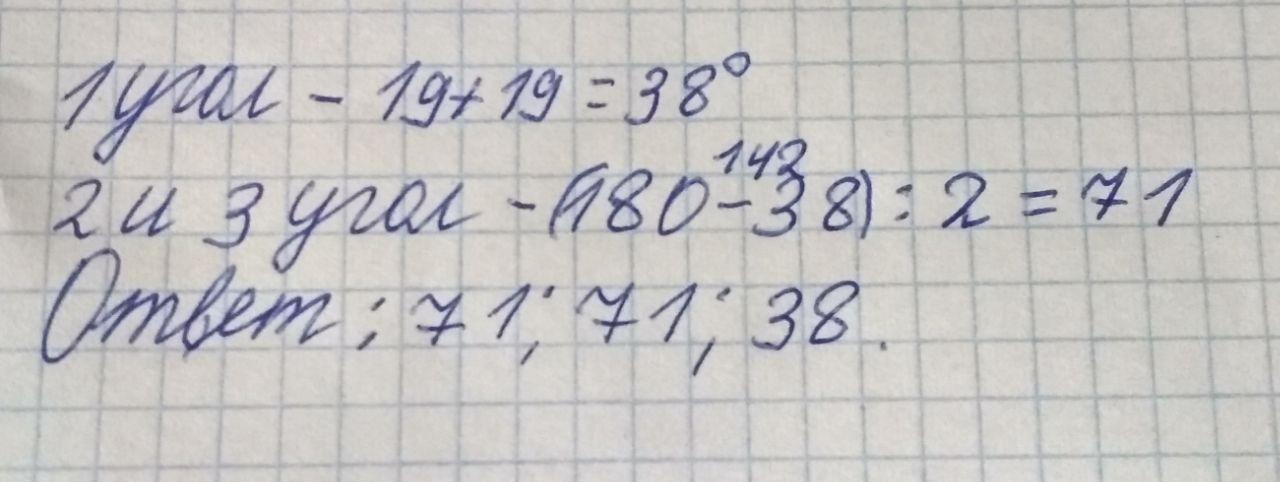 1 угол - 19+19=38°
142
2 и 3 угол - (180-38):2=71
Ответ: 71; 71; 38.